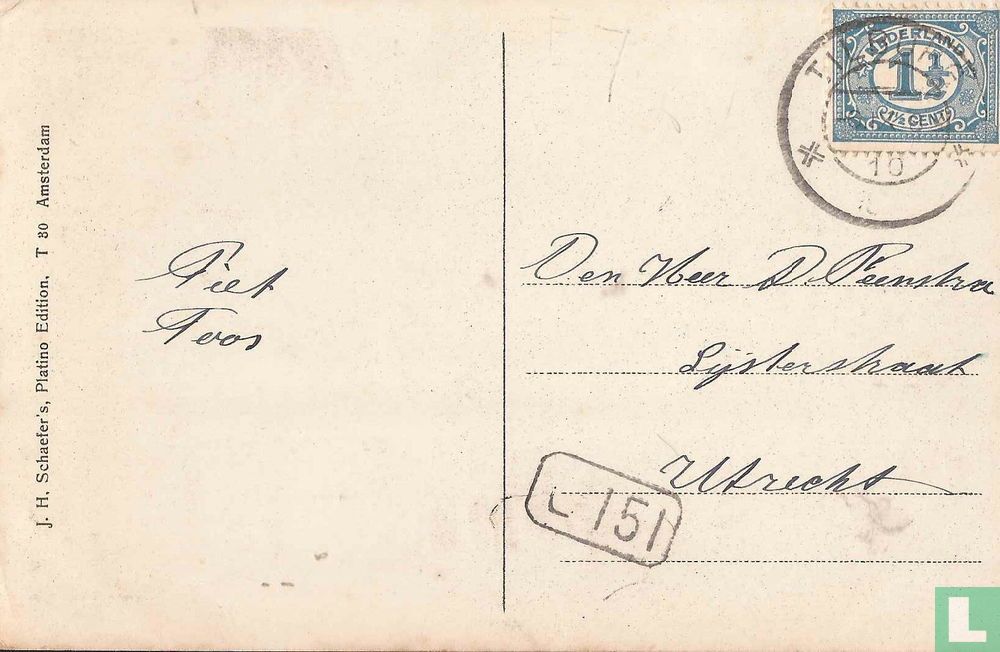 J. H. Schaefer's, Platino Edition, T 80 Amsterdam
Piet
Toos
NEDERLAND
1½
1½ CENT
10
Den Heer D. Veenstra
Lijsterstraat
Utrecht
L 151
L